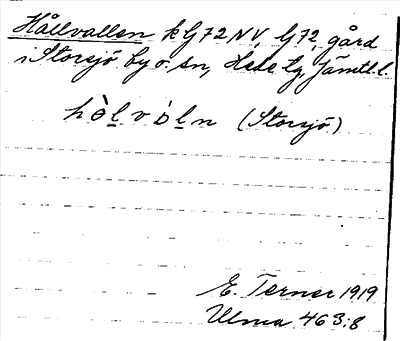 Hållvallen k G72 NV, G72, gård
i Storsjö by o. sn, Hede tg, Jämtl. l.
hòḻvòḻn (Storsjö)
E. Terner 1919
Ulma 463:8